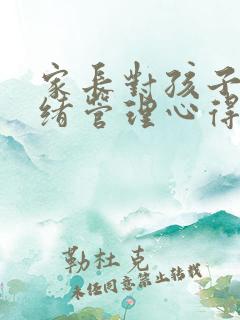 家長對孩子
緒管理心得
勒杜克
未经同意禁止转载